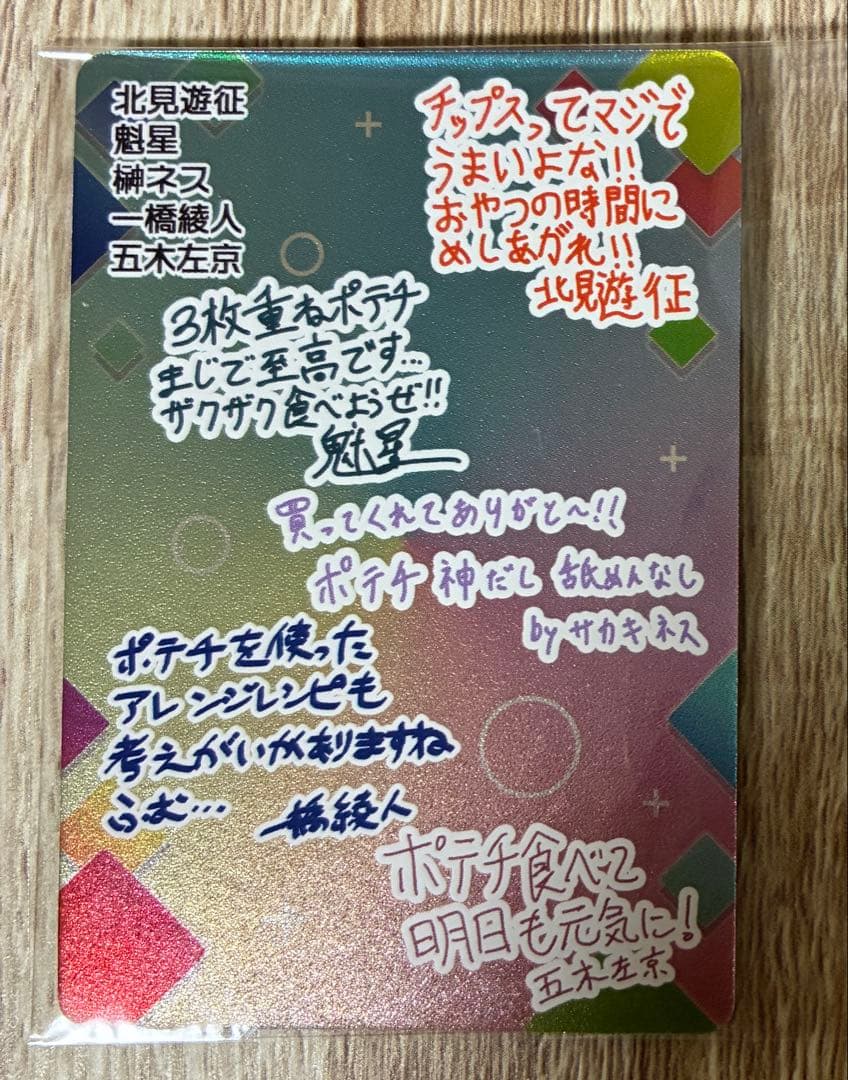 北見遊征
魁星
榊ネス
一橋綾人
五木左京
チップスってマジで
うまいよな!!
おやつの時間に
めしあがれ!!
北見遊征
3枚重ねポテチ
まじで至高です…
ザクザク食べようぜ!!
魁星
買ってくれてありがと〜!!
ポテチ 神だし 舐めんなし
by サカキネス
ポテチを使った
アレンジレシピも
考えがいがありますね
ふむ…
一橋綾人
ポテチ食べて
明日も元気に!
五木左京